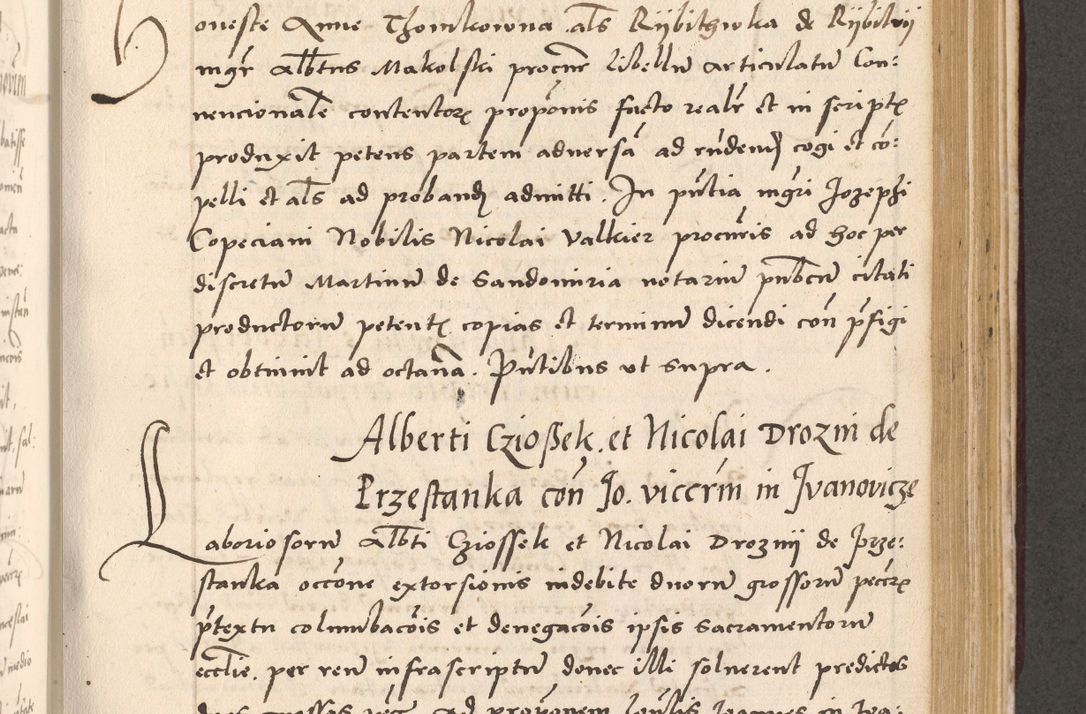 oneste Anne Thomkowna als Rijbithwka de Rijbitwij
mgr Albtus Makolski procur libellu articulatu Con:
uencionale contentor proponis facto realr et in script
produxit petens partem aduersa ad rudend cogi et co:
pelli et als ad proband admitti. In putia mgri Jozephi
Copeciani Nobilis Nicolai Valkier procuris ad hoc per
discretu Martinu de Sandomiria notariu publicu citati
productoru petent copias et terminu dicendi con pfigi
et obtinuit ad octaua. Putibus ut supra.
Alberti Czioßek. et Nicolai Drozni de
Przestanka con Jo. vicerm in Jvanovicze
Laboriosoru Albti Cziossek et Nicolai Droznij de Przе:
stanka occone extorsionis indebite duoru grossoru pecer
ptextu columbacois et denegacois ipsis Sacramentoru
ecclie. per reu infrascriptu donec illi soluerent predictos
duos grossos